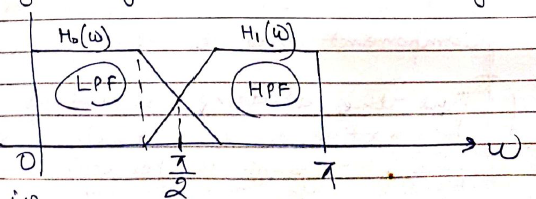 H₀(ω) H₁(ω)
LPF HPF
0 π/2 π ω